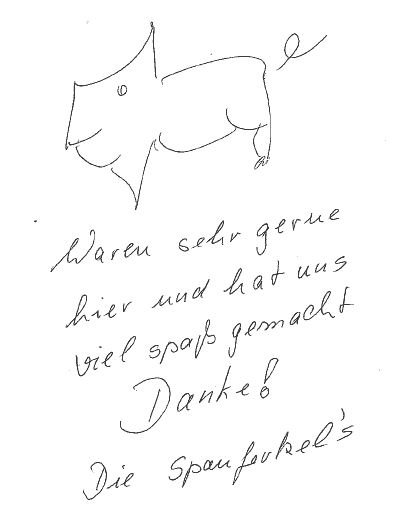 Waren sehr gerne
hier und hat uns
viel spaß gemacht
Danke!
Die Spanferkel's